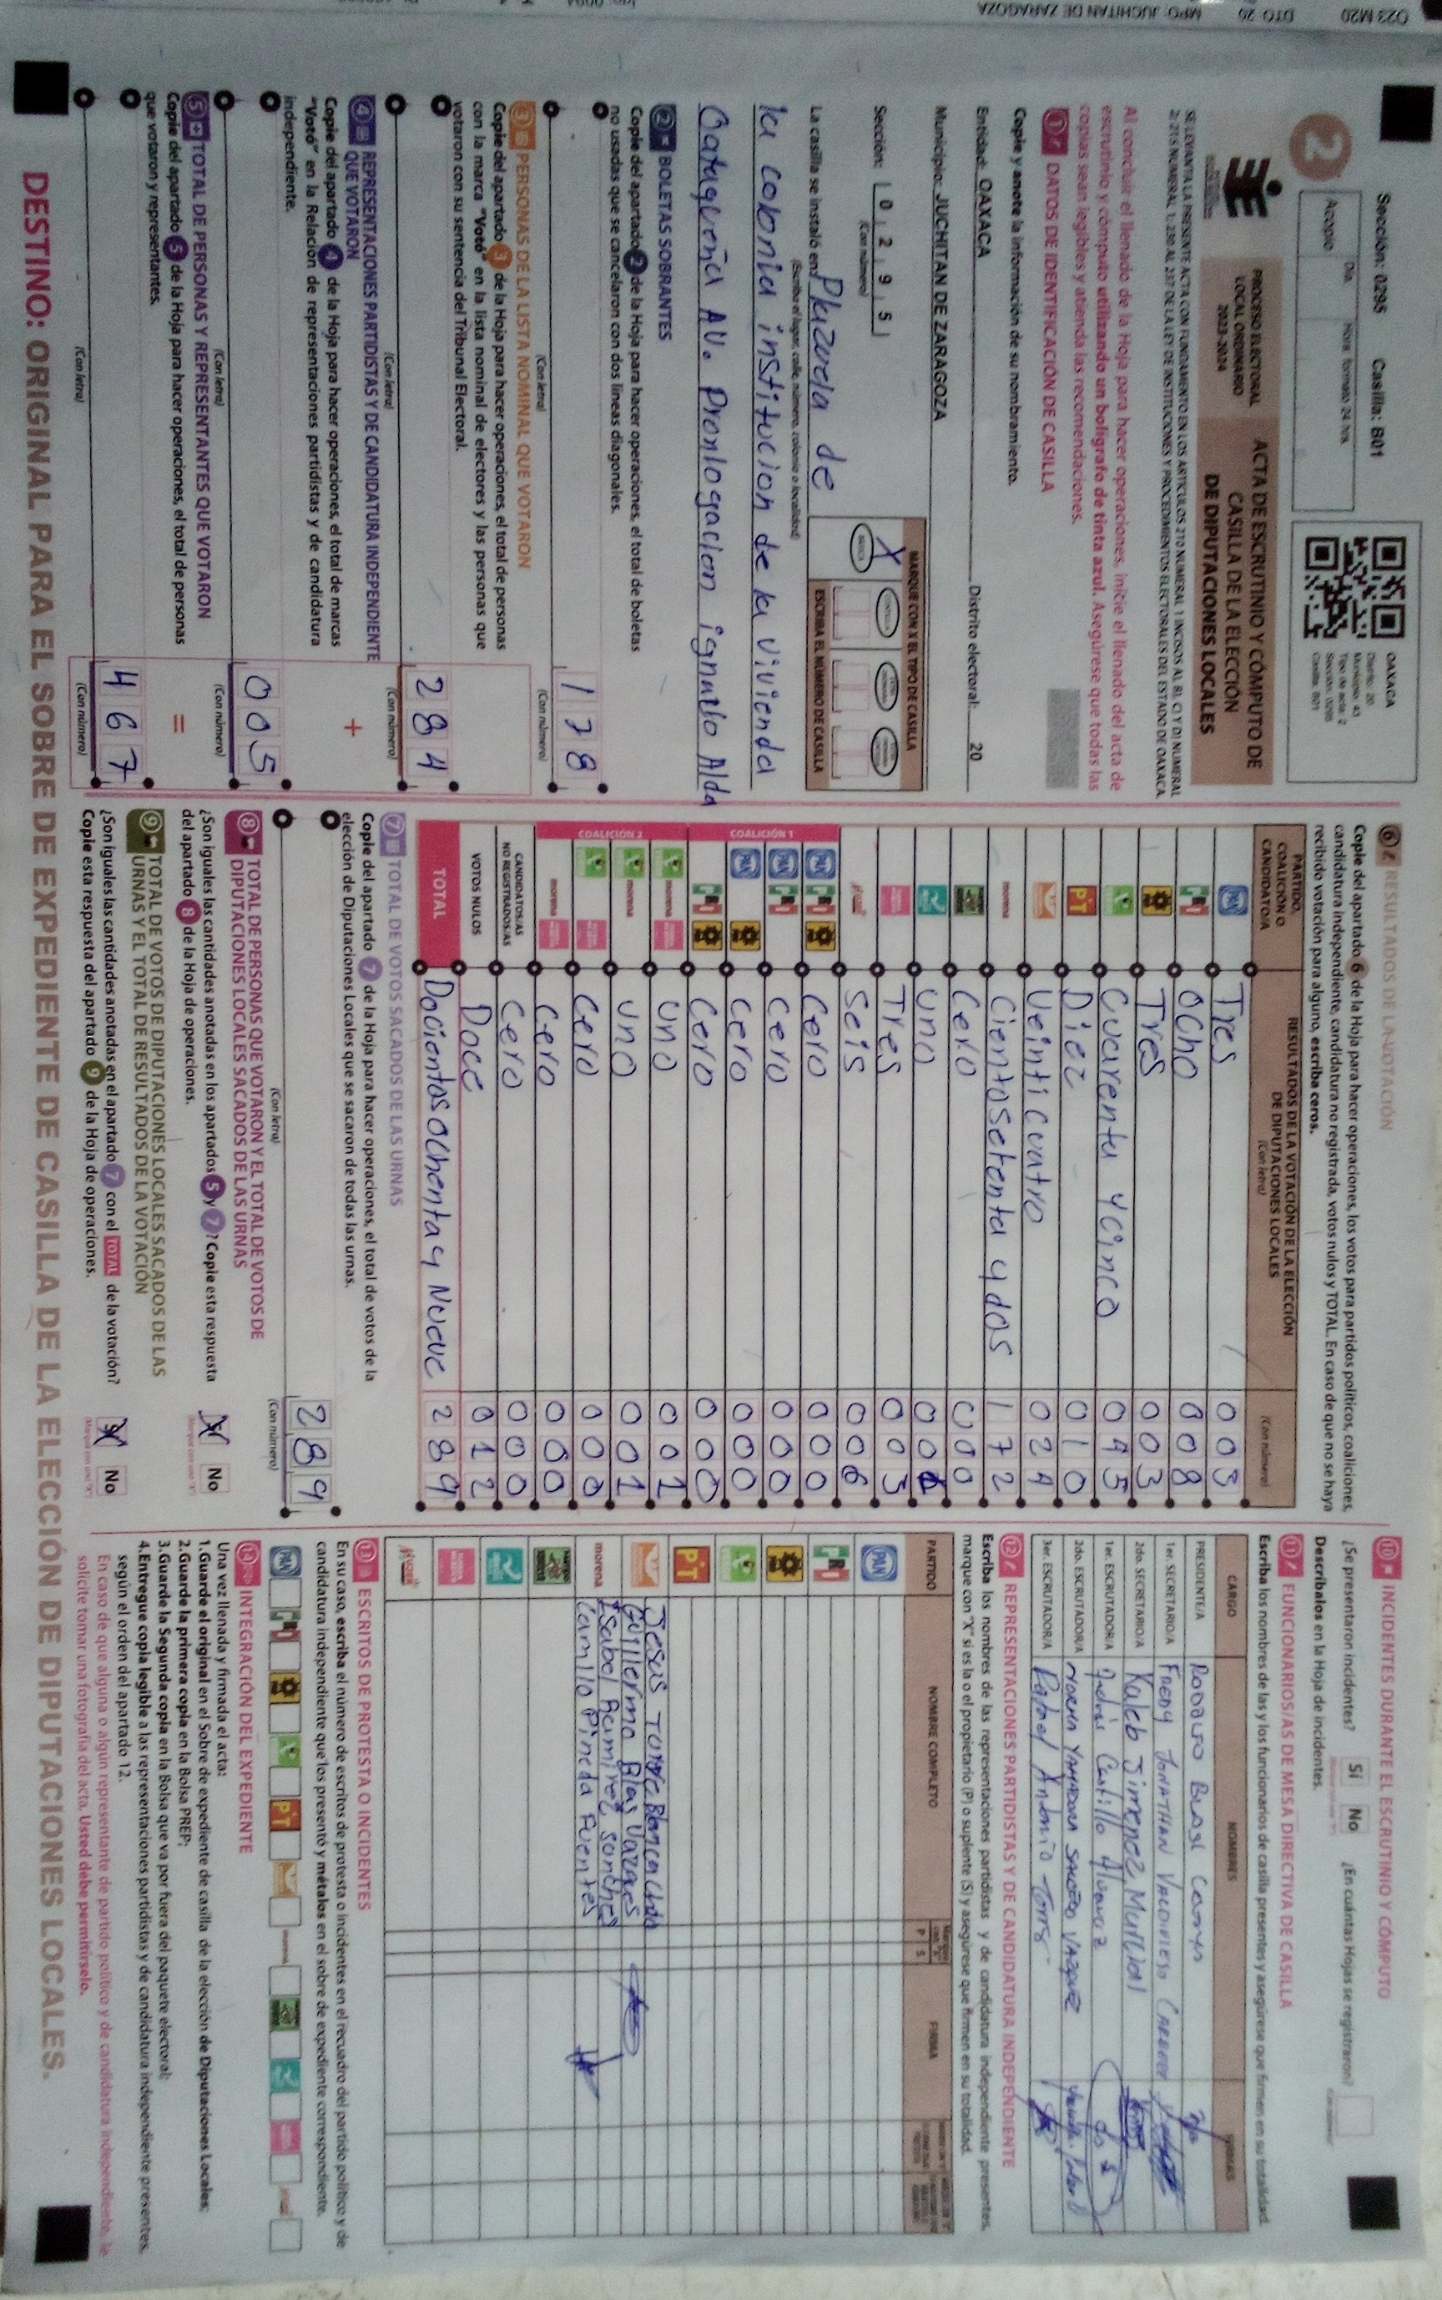 O23 M20 DTO 20 MPO. JUCHITAN DE ZARAGOZA
Sección: 0295 Casilla: B01
Día Hora formato 24 hrs.
Acopio
OAXACA
Distrito: 20
Municipio: 43
Tipo de acta: 2
Sección: 0295
Casilla: B01
2
PROCESO ELECTORAL
LOCAL ORDINARIO
2023-2024
ACTA DE ESCRUTINIO Y CÓMPUTO DE
CASILLA DE LA ELECCIÓN
DE DIPUTACIONES LOCALES
SE LEVANTA LA PRESENTE ACTA CON FUNDAMENTO EN LOS ARTÍCULOS 210 NUMERAL 1 INCISOS A), B), C) Y D) NUMERAL
2; 215 NUMERAL 1; 230 AL 237 DE LA LEY DE INSTITUCIONES Y PROCEDIMIENTOS ELECTORALES DEL ESTADO DE OAXACA.
Al concluir el llenado de la Hoja para hacer operaciones, inicie el llenado del acta de
escrutinio y cómputo utilizando un bolígrafo de tinta azul. Asegúrese que todas las
copias sean legibles y atienda las recomendaciones.
1 DATOS DE IDENTIFICACIÓN DE CASILLA
Copie y anote la información de su nombramiento.
Entidad: OAXACA Distrito electoral: 20
Municipio: JUCHITAN DE ZARAGOZA
Sección: 0 2 9 5
(Con número)
MARQUE CON X EL TIPO DE CASILLA
X
BÁSICA
ESCRIBA EL NÚMERO DE CASILLA
La casilla se instaló en: Plazuela de
(Escriba el lugar, calle, número, colonia o localidad)
la colonia institucion de la vivienda
AV. Pronlogacion ignacio Alda
2 BOLETAS SOBRANTES
Copie del apartado 2 de la Hoja para hacer operaciones, el total de boletas
no usadas que se cancelaron con dos líneas diagonales.
178
(Con letra) (Con número)
3 PERSONAS DE LA LISTA NOMINAL QUE VOTARON
Copie del apartado 3 de la Hoja para hacer operaciones, el total de personas
con la marca "Votó" en la lista nominal de electores y las personas que
votaron con su sentencia del Tribunal Electoral.
284
(Con letra) (Con número)
4 REPRESENTACIONES PARTIDISTAS Y DE CANDIDATURA INDEPENDIENTE
QUE VOTARON
+
Copie del apartado 4 de la Hoja para hacer operaciones, el total de marcas
"Votó" en la Relación de representaciones partidistas y de candidatura
independiente.
005
(Con letra) (Con número)
5 TOTAL DE PERSONAS Y REPRESENTANTES QUE VOTARON
=
Copie del apartado 5 de la Hoja para hacer operaciones, el total de personas
que votaron y representantes.
467
(Con letra) (Con número)
6 RESULTADOS DE LA VOTACIÓN
Copie del apartado 6 de la Hoja para hacer operaciones, los votos para partidos políticos, coaliciones,
candidatura independiente, candidatura no registrada, votos nulos y TOTAL. En caso de que no se haya
recibido votación para alguno, escriba ceros.
PARTIDO, COALICIÓN O CANDIDATO/A
RESULTADOS DE LA VOTACIÓN DE LA ELECCIÓN DE DIPUTACIONES LOCALES
(Con letra) (Con número)
PAN Tres 003
PRI Ocho 008
PRD Tres 003
Cuarenta y cinco 045
PT Diez 010
Veinticuatro 024
morena Cientosetenta y dos 172
Cero 000
Uno 001
Tres 003
Seis 006
COALICIÓN 1
PAN PRI PRD Cero 000
PAN PRI Cero 000
PAN PRD Cero 000
PRI PRD Cero 000
COALICIÓN 2
morena Uno 001
morena Uno 001
Cero 000
morena Cero 000
CANDIDATOS/AS NO REGISTRADOS/AS Cero 000
VOTOS NULOS Doce 012
TOTAL Docientos ochenta y Nueve 289
7 TOTAL DE VOTOS SACADOS DE LAS URNAS
Copie del apartado 7 de la Hoja para hacer operaciones, el total de votos de la
elección de Diputaciones Locales que se sacaron de todas las urnas.
289
(Con letra) (Con número)
8 TOTAL DE PERSONAS QUE VOTARON Y EL TOTAL DE VOTOS DE
DIPUTACIONES LOCALES SACADOS DE LAS URNAS
¿Son iguales las cantidades anotadas en los apartados 5 y 7? Copie esta respuesta
del apartado 8 de la Hoja de operaciones.
Sí No
9 TOTAL DE VOTOS DE DIPUTACIONES LOCALES SACADOS DE LAS
URNAS Y EL TOTAL DE RESULTADOS DE LA VOTACIÓN
¿Son iguales las cantidades anotadas en el apartado 7 con el TOTAL de la votación?
Copie esta respuesta del apartado 9 de la Hoja de operaciones.
Sí No
10 INCIDENTES DURANTE EL ESCRUTINIO Y CÓMPUTO
¿Se presentaron incidentes? Sí No ¿En cuántas Hojas se registraron?
Descríbalos en la Hoja de incidentes.
11 FUNCIONARIOS/AS DE MESA DIRECTIVA DE CASILLA
Escriba los nombres de las y los funcionarios de casilla presentes y asegúrese que firmen en su totalidad.
CARGO NOMBRES FIRMAS
PRESIDENTE/A
1er. SECRETARIO/A FREDY JONATHAN VALDIVIESO
2do. SECRETARIO/A Kaleb Jimenez Marcial
1er. ESCRUTADOR/A Castillo Alvarez
2do. ESCRUTADOR/A
3er. ESCRUTADOR/A Rafael Antonio Torres
12 REPRESENTACIONES PARTIDISTAS Y DE CANDIDATURA INDEPENDIENTE
Escriba los nombres de las representaciones partidistas y de candidatura independiente presentes,
marque con "X" si es la o el propietario (P) o suplente (S) y asegúrese que firmen en su totalidad.
PARTIDO NOMBRE COMPLETO P S FIRMA
PAN
PRI
PRD
PT
Jesus
Guillermo Blas Vazques
morena Isabel Ramirez Sanchez
Camilo Pineda Fuentes
13 ESCRITOS DE PROTESTA O INCIDENTES
En su caso, escriba el número de escritos de protesta o incidentes en el recuadro del partido político y de
candidatura independiente que los presentó y métalos en el sobre de expediente correspondiente.
PAN PRI PRD PT morena
14 INTEGRACIÓN DEL EXPEDIENTE
Una vez llenada y firmada el acta:
1.Guarde el original en el Sobre de expediente de casilla de la elección de Diputaciones Locales;
2.Guarde la primera copia en la Bolsa PREP;
3.Guarde la Segunda copia en la Bolsa que va por fuera del paquete electoral;
4.Entregue copia legible a las representaciones partidistas y de candidatura independiente presentes,
según el orden del apartado 12.
En caso de que alguna o algún representante de partido político y de candidatura independiente, le
solicite tomar una fotografía del acta, Usted debe permitírselo.
DESTINO: ORIGINAL PARA EL SOBRE DE EXPEDIENTE DE CASILLA DE LA ELECCIÓN DE DIPUTACIONES LOCALES.